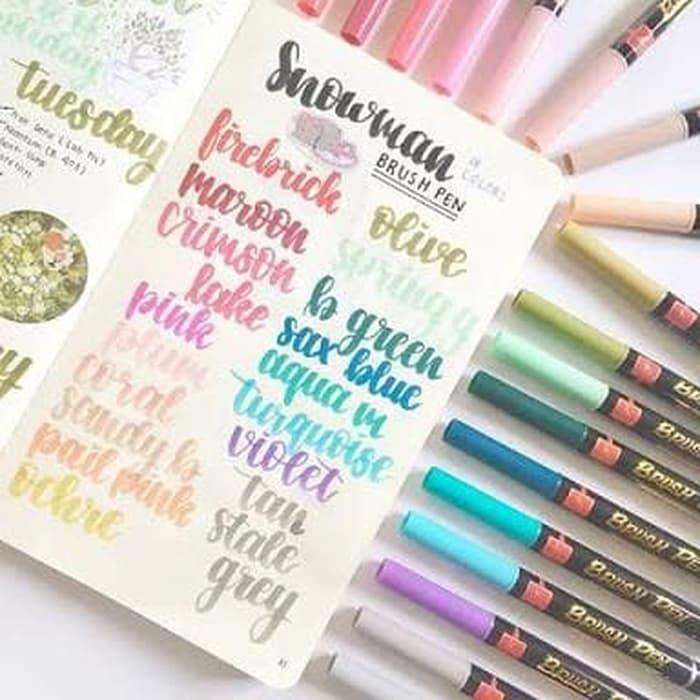 tuesday
Snowman
BRUSH PEN
18 COLORS
firebrick
maroon
crimson
lake
pink
plum
coral
sandy b
pail pink
ochre
olive
spring g
b green
sax blue
aqua m
turquoise
violet
tan
stale
grey
BRUSH PEN
BRUSH PEN
BRUSH PEN
BRUSH PEN
BRUSH PEN
BRUSH PEN